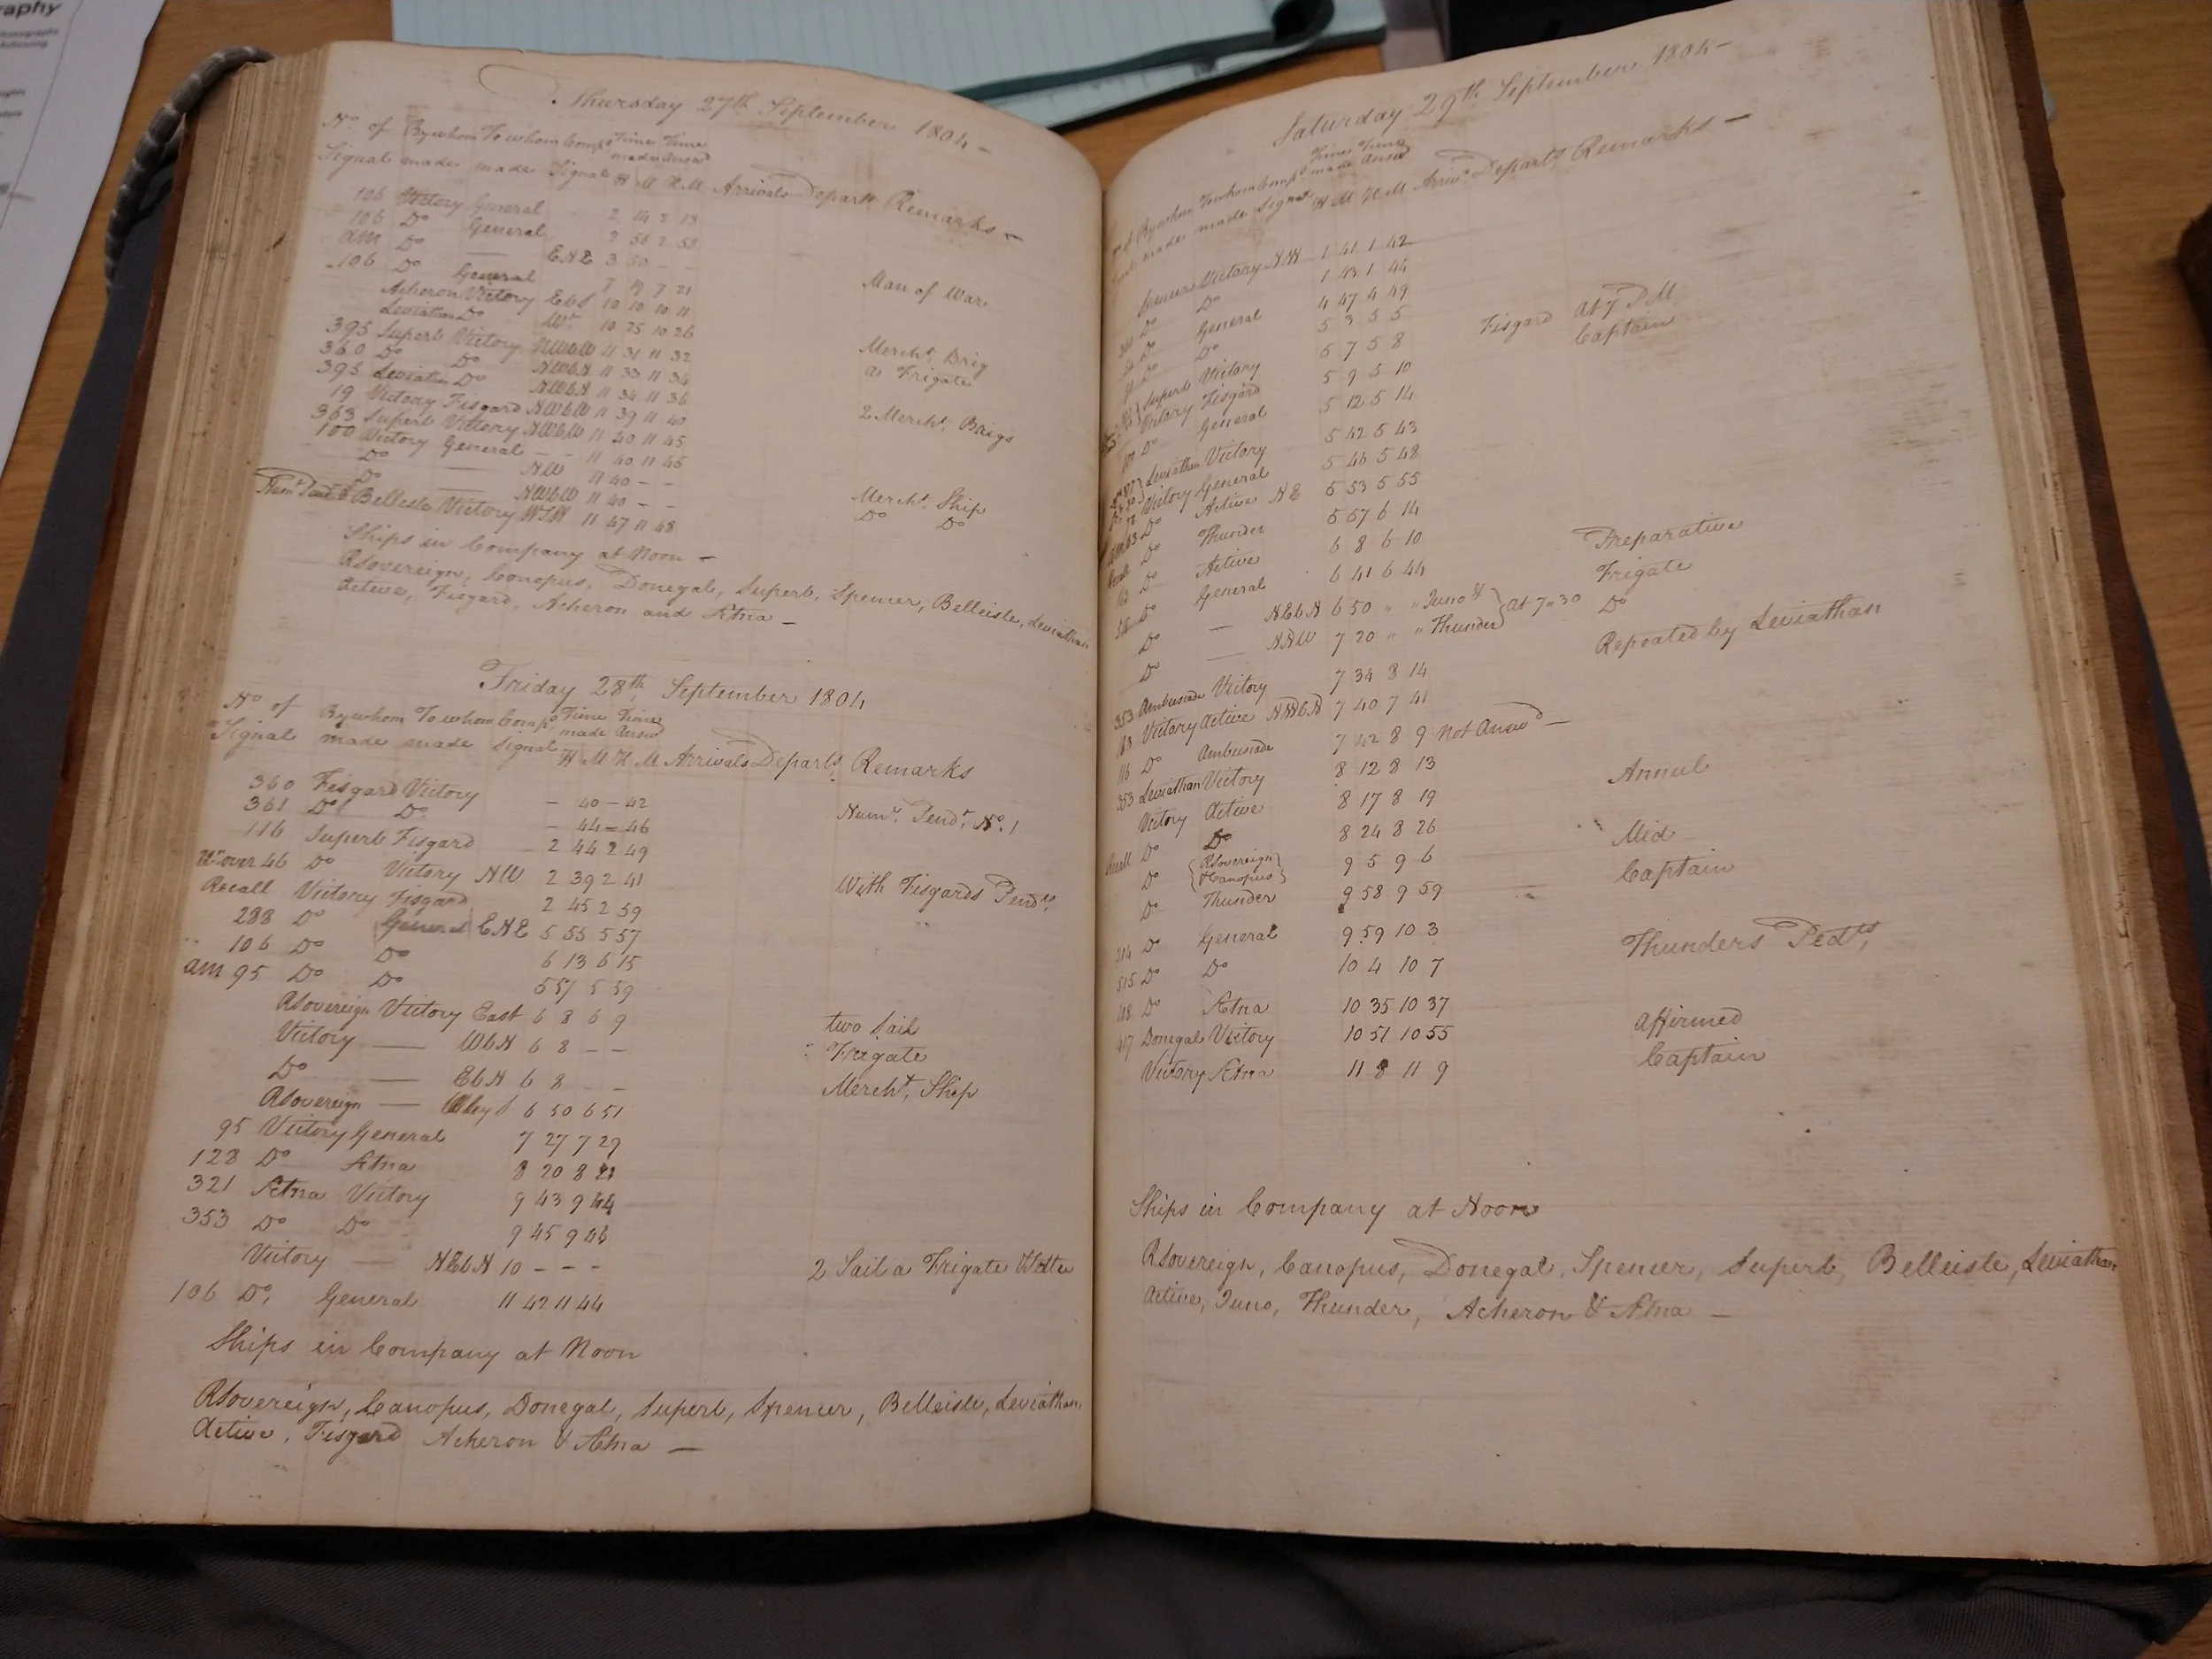 raphy
Thursday 27th September 1804 –
No. of By whom To whom Comps Time Time
made Answd
Signal made made Signal H M H M Arrivals Departs Remarks –
106 Victory General 2 14 2 18
106 Do General 2 56 2 58
am Do — ENE 3 50 - -
106 Do General 7 19 7 21
Acheron Victory EbS 10 10 10 11 Man of War
Leviathan Do Wt 10 25 10 26
395 Superb Victory NWbW 11 31 11 32 Mercht. Brig
360 Do Do NWbN 11 33 11 34 a Frigate
395 Leviathan Do NWbN 11 34 11 36
19 Victory Fisgard NWbW 11 39 11 40 2 Mercht. Brigs
363 Superb Victory NWbW 11 40 11 45
100 Victory General - - 11 40 11 45
Do — NW 11 40 - - Mercht. Ship
Do — NWbW 11 40 - - Do Do
Belleisle Victory 11 47 11 48
Ships in Company at Noon –
RSovereign, Conopus, Donegal, Superb, Spencer, Belleisle, Leviathan
Active, Fisgard, Acheron and Ætna –
Friday 28th September 1804
No of By whom To whom Comps Time Time
made Answd
Signal made made Signal H M H M Arrivals Departs Remarks
360 Fisgard Victory – 40 – 42
361 Do Do – 44 – 46 Numl. Pendt. No. 1
116 Superb Fisgard 2 44 2 49
over 46 Do Victory NW 2 39 2 41 With Fisgards Pendts.
Recall Victory Fisgard 2 45 2 59
288 Do General ENE 5 55 5 57
106 Do Do 6 13 6 15
am 95 Do Do 5 57 5 59
RSovereign Victory East 6 8 6 9 two Sail
Victory — WbN 6 8 – – Frigate
Do — EbN 6 8 - - Mercht. Ship
RSovereign — 6 50 6 51
95 Victory General 7 27 7 29
128 Do Ætna 8 20 8 21
321 Ætna Victory 9 43 9 44
353 Do Do 9 45 9 46
Victory — NEbN 10 - - - 2 Sail a Frigate
106 Do. General 11 42 11 44
Ships in Company at Noon
RSovereign, Canopus, Donegal, Superb, Spencer, Belleisle, Leviathan,
Active, Fisgard Acheron & Ætna —
Saturday 29th September 1804 –
By whom To whom Comps Time Time
made Answd
made made Signal H M H M Arrivs Departs Remarks –
Spencer Victory NW 1 41 1 42
Do Do 1 43 1 44
Do General 4 47 4 49
Do Do 5 3 5 5 Fisgard At 7 PM
Superb Victory 5 7 5 8 Captain
Victory Fisgard 5 9 5 10
Do General 5 12 5 14
Leviathan Victory 5 42 5 43
Victory General 5 46 5 48
Do Active NE 5 53 5 55
Do Thunder 5 57 6 14
Do Active 6 8 6 10 Preparative
Do General 6 41 6 44 Frigate
Do — NEbN 6 50 " " Juno & } at 7 " 30 Do
Do — NNW 7 20 " " Thunder Repeated by Leviathan
353 Ambuscade Victory 7 34 8 14
163 Victory Active 7 40 7 41
116 Do Ambuscade 7 42 8 9 Not Answd –
353 Leviathan Victory 8 12 8 13 Annul
Victory Active 8 17 8 19
Recall Do Do 8 24 8 26 Mid
Do { RSovereign & Canopus } 9 5 9 6 Captain
Do Thunder 9 58 9 59
214 Do General 9 59 10 3 Thunders Pedts,
515 Do Do 10 4 10 7
Do Ætna 10 35 10 37 Affirmed
Donegal Victory 10 51 10 55 Captain
Victory Ætna 11 8 11 9
Ships in Company at Noon
RSovereign, Canopus, Donegal, Spencer, Superb, Belleisle, Leviathan
Active, Juno, Thunder, Acheron & Ætna —